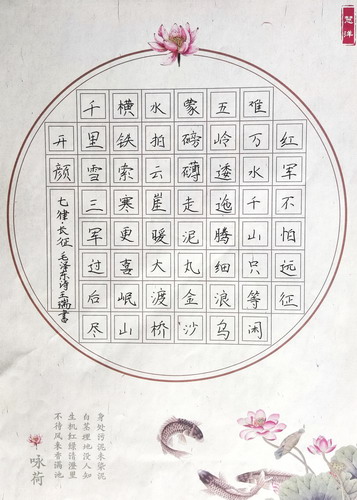 红军不怕远征
难万水千山只等闲
五岭逶迤腾细浪乌
蒙磅礴走泥丸金沙
水拍云崖暖大渡桥
横铁索寒更喜岷山
千里雪三军过后尽
开颜
七律·长征 毛泽东诗 王瑞書
身处污泥未染泥
白茎埋地没人知
生机红绿清澄里
不待风来香满池
咏荷